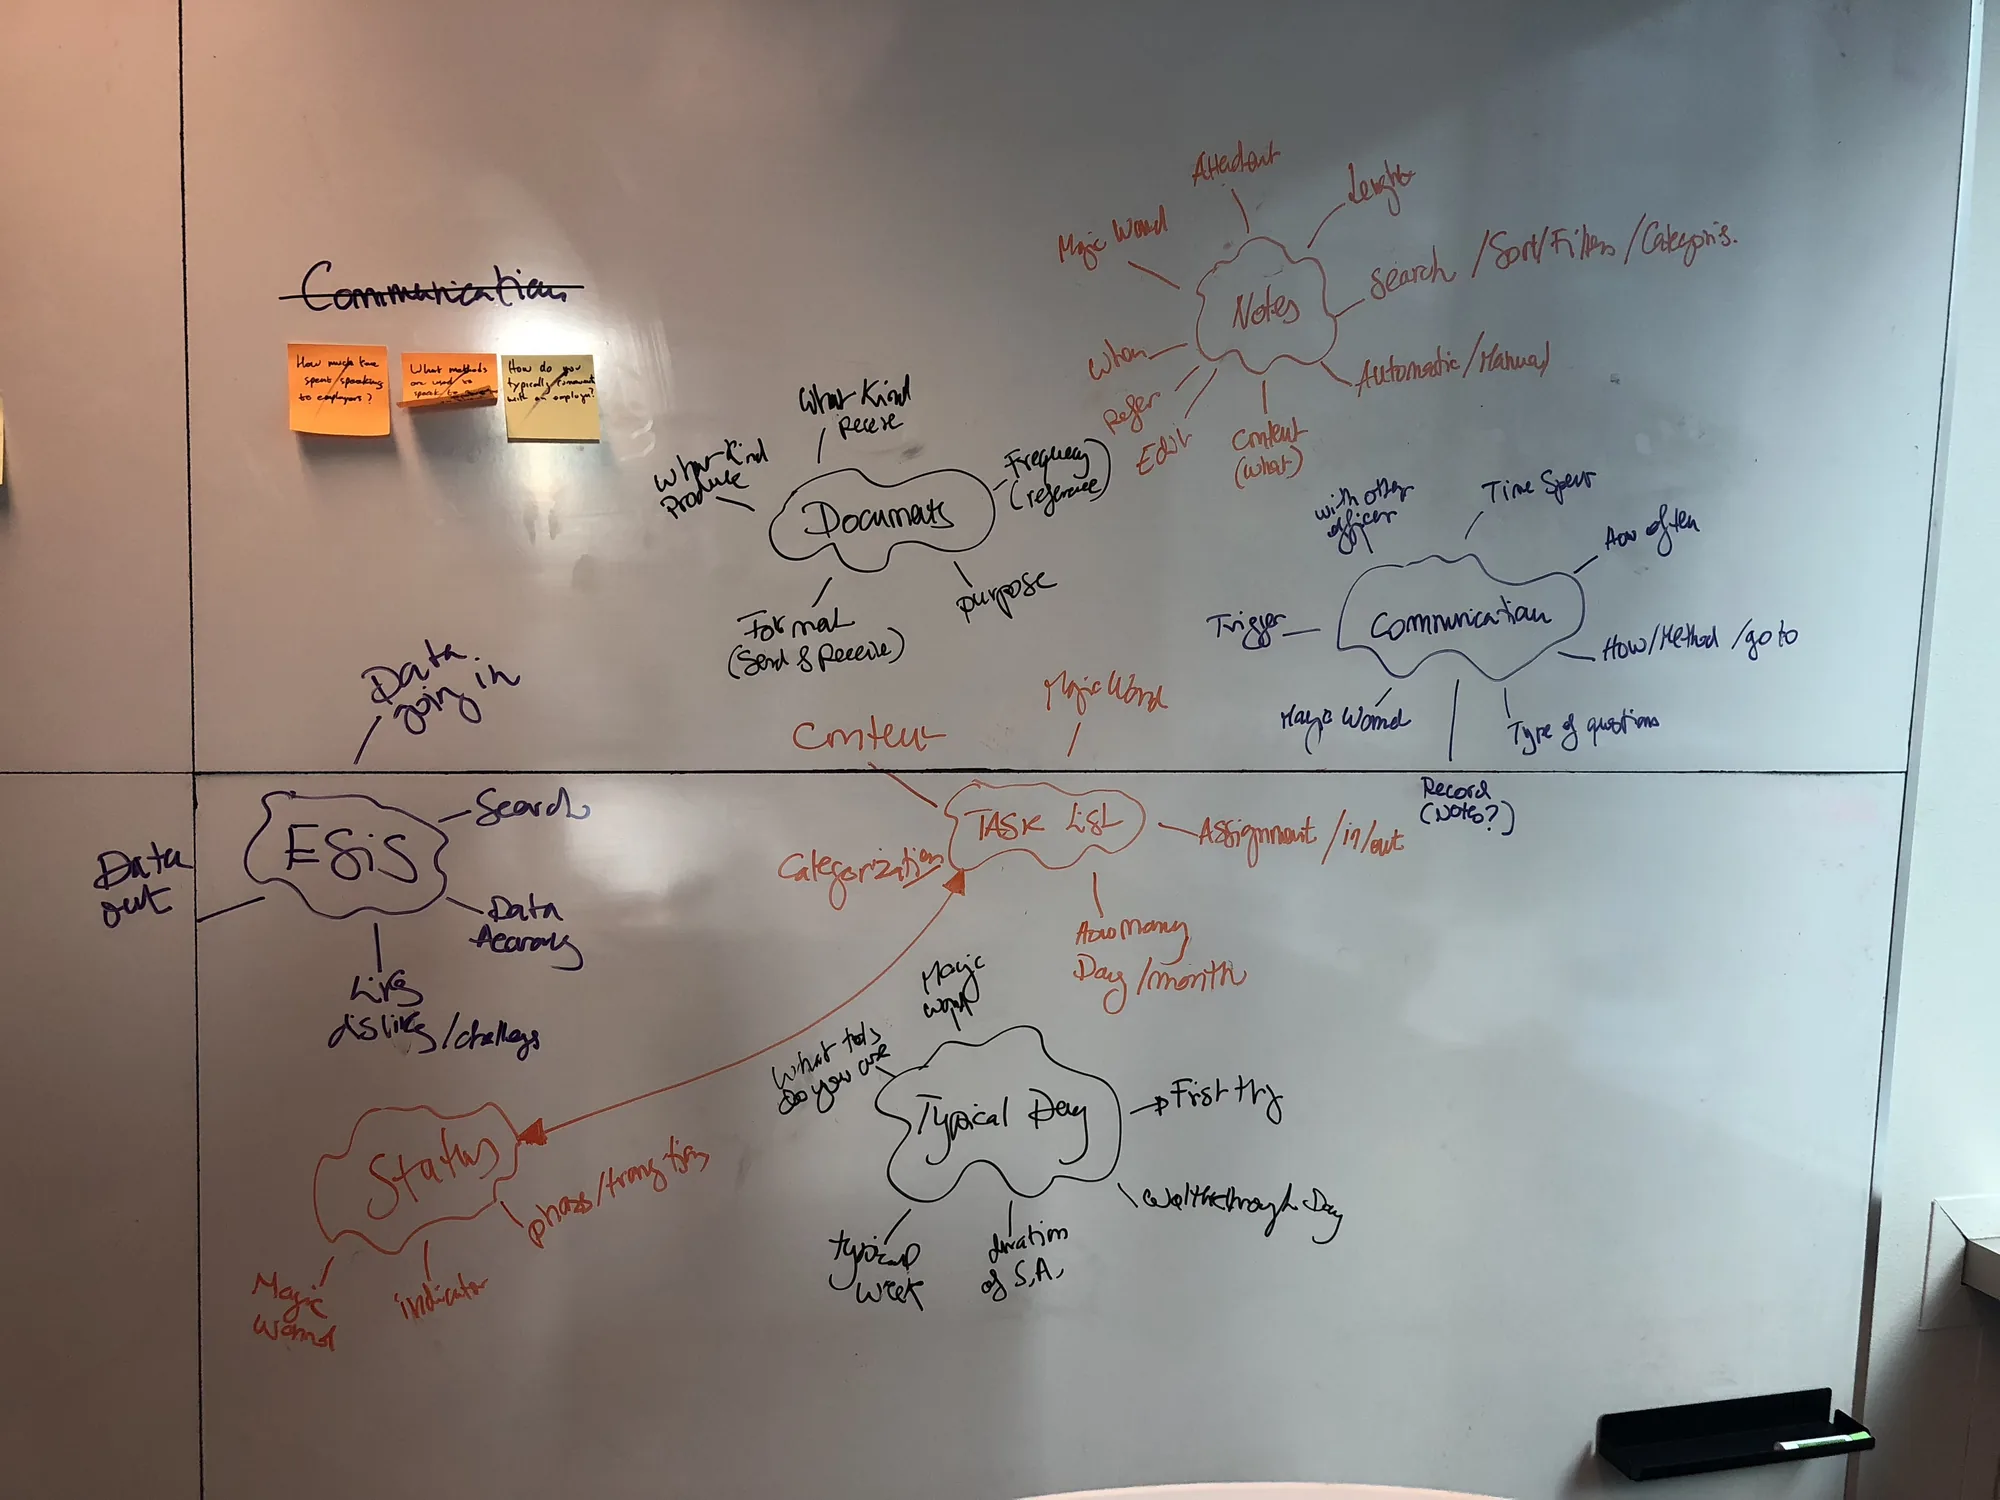 Communication
How much time
spent speaking
to employers?
What methods
are used to
speak to
How do you
typically
with an employer?
Magic Wand
Lenght
Search /Sort/Filters/Categoris.
Notes
When
Automatic/Manual
Refer
Edit
Content
(what)
What Kind
Receive
What Kind
Produce
Frequency
(reference)
Documents
purpose
Format
(Send & Receive)
with other
officer
Time Spent
How often
Trigger
Communication
How/Method /go to
Magic Wand
Type of questions
Record
(Notes?)
Data
going in
Data
out
ESiS
Search
Data
Accuracy
Likes
dislikes/challenges
Content
Magic Wand
TASK List
Categorization
Assignment /in/out
How Many
Day /month
Status
phases/transition
Magic
Wand
indicator
Magic
wand
What tools
Do you use
Typical Day
First thg
Walkthrough Day
Typical
week
duration
of S.A.